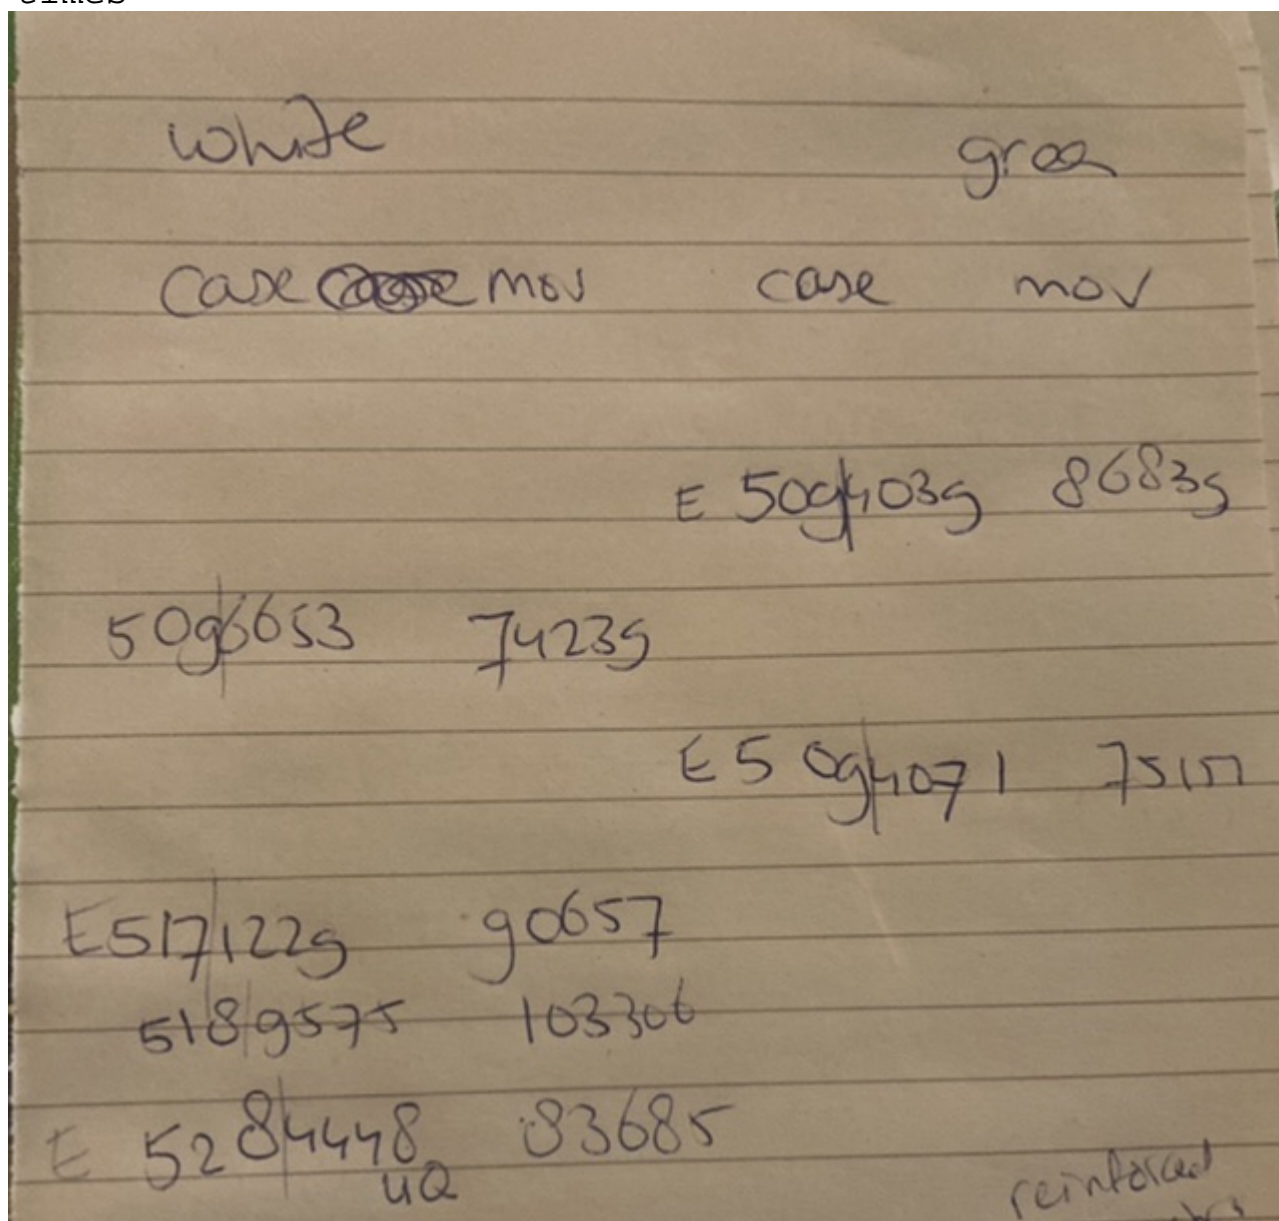 white green
case mov case mov
E 509|4039 86839
509|6653 74239
E 509|4071 75157
E517|1229 90657
518|9575 103306
E 528|4448 83685
UQ
reinforced